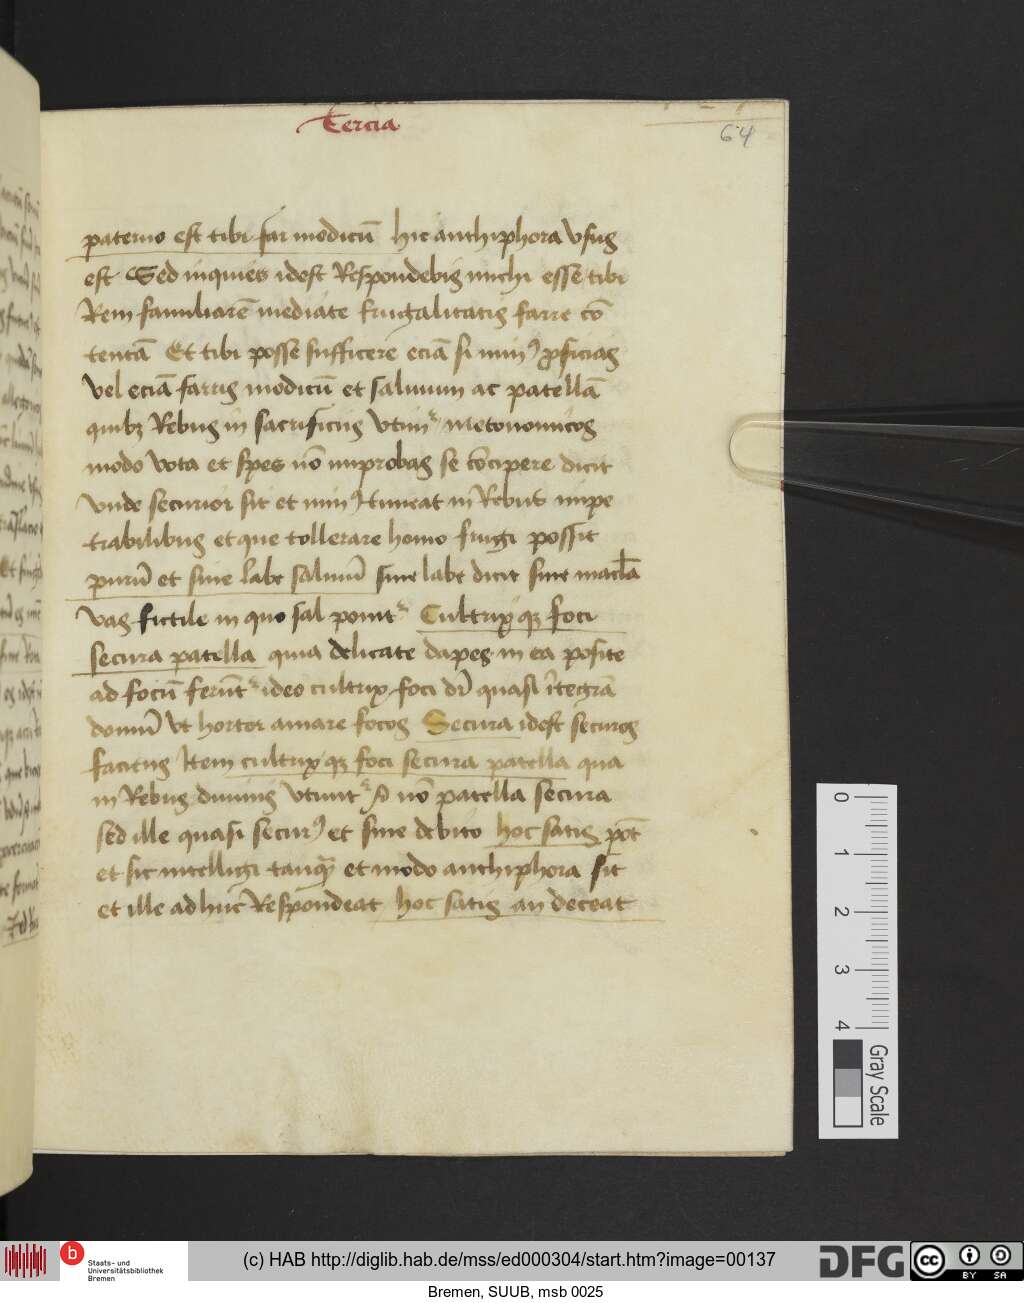 Tercia
64
paterno est tibi far modicū hic anthiphora vsus
est Sed inquies idest Respondebis michi esse tibi
Rem familiarē mediate frugalitatis farre cō
tentā Et tibi posse sufficere eciā si min9 pficias
vel eciā farris modicū et salinum ac patellā
quibz Rebus in sacrificiis vtim᷑ metonomicos
modo vota et spes nō improbas se cōcipere dicit
vnde securior sit et min9 timeat in Rebus impe
trabilibus et que tollerare homo frugi possit
purū et sine labe salinū sine labe dicit sine macla
vas fictile in quo sal ponit᷑ Cultrix qz foci
secura patella quia delicate dapes in ea posite
ad focū ferūt᷑ ideo cultrix foci dr̄ quasi ītegrā
domū vt hortor amare focos Secura idest securos
facitus Item cultrix qz foci secura patella qua
in Rebus diuinis vtunt᷑ nō patella secura
sed ille quasi secur9 et sine debito hoc satis pōt
et sic intelligi tanqȝ et modo anthiphora sit
et ille ad huc Respondeat hoc satis an deceat
0
1
2
3
4
Gray Scale
b Staats- und
Universitätsbibliothek
Bremen
(c) HAB http://diglib.hab.de/mss/ed000304/start.htm?image=00137
DFG
cc BY SA
Bremen, SUUB, msb 0025